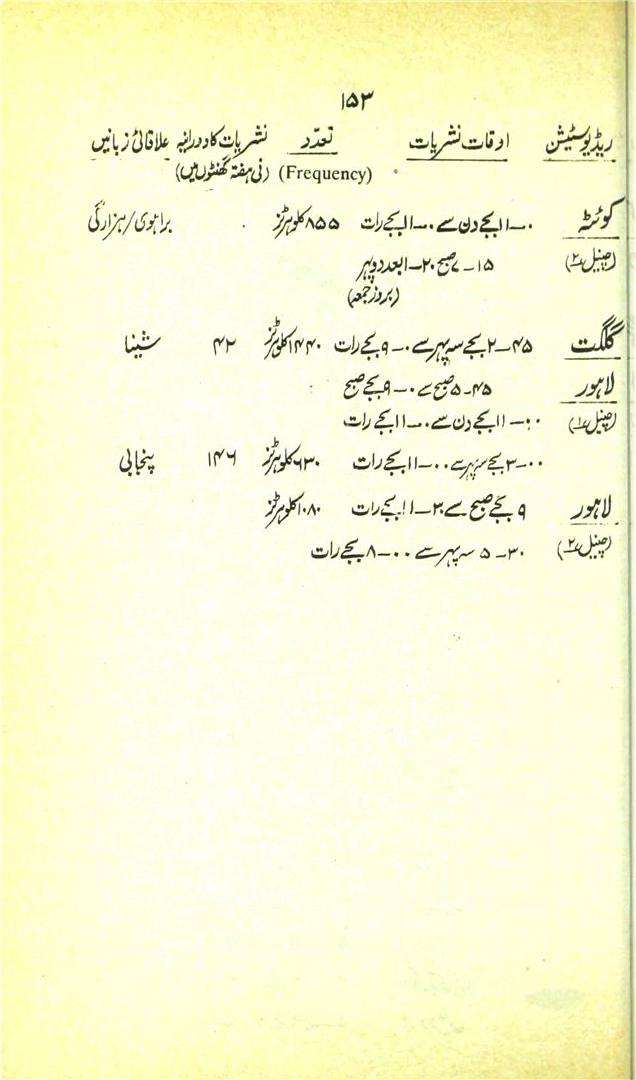 ۱۵۳
ریڈیو سٹیشن اوقات نشریات تعدّد نشریات کا دورانیہ علاقائی زبانیں
(Frequency) (فی ہفتہ گھنٹوں میں)
کوئٹہ ۰۔۱۱ بجے دن سے ۰۔۱۱ بجے رات ۸۵۵ کلوہرٹز براہوی/ہزارگی
(چینل ۲) ۱۵۔۷ صبح ۲۰۔۱ بعد دوپہر
(بروز جمعہ)
گلگت ۴۵۔۲ بجے سہ پہر سے ۰۔۹ بجے رات ۱۴۴۰ کلوہرٹز ۴۲ شینا
لاہور ۴۵۔۵ صبح سے ۰۔۹ بجے صبح
(چینل ۱) ۰۰۔۱۱ بجے دن سے ۰۰۔۱۱ بجے رات
۰۰۔۳ بجے سہ پہر سے ۰۰۔۱۱ بجے رات ۶۳۰ کلوہرٹز ۱۴۶ پنجابی
لاہور ۹ بجے صبح سے ۳۰۔۱۱ بجے رات ۱۰۸۰ کلوہرٹز
(چینل ۲) ۳۰۔۵ سہ پہر سے ۰۰۔۸ بجے رات